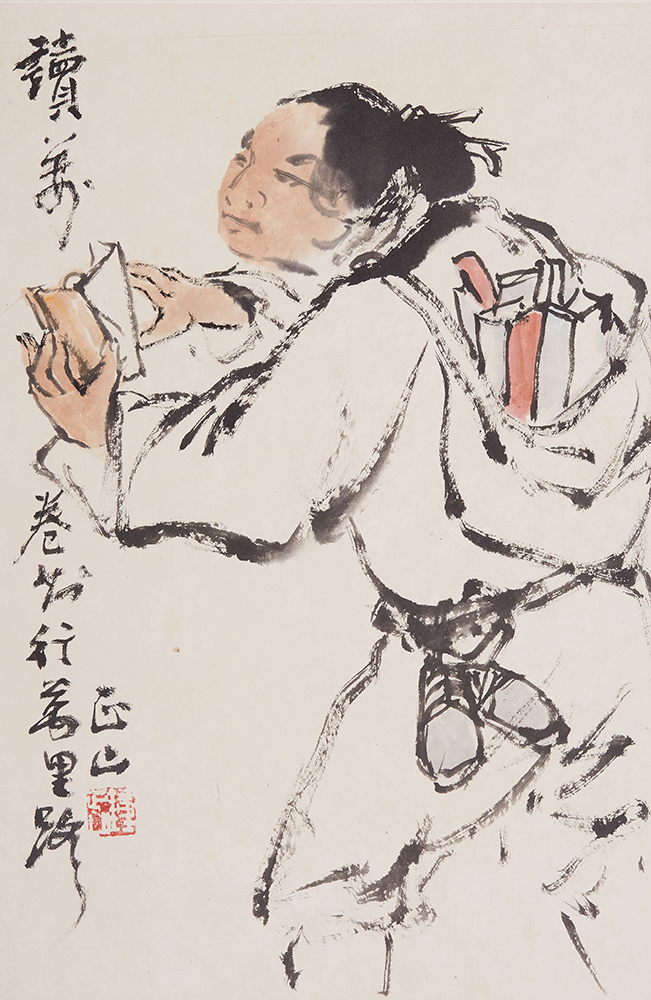 讀萬
卷書行萬里路
正山